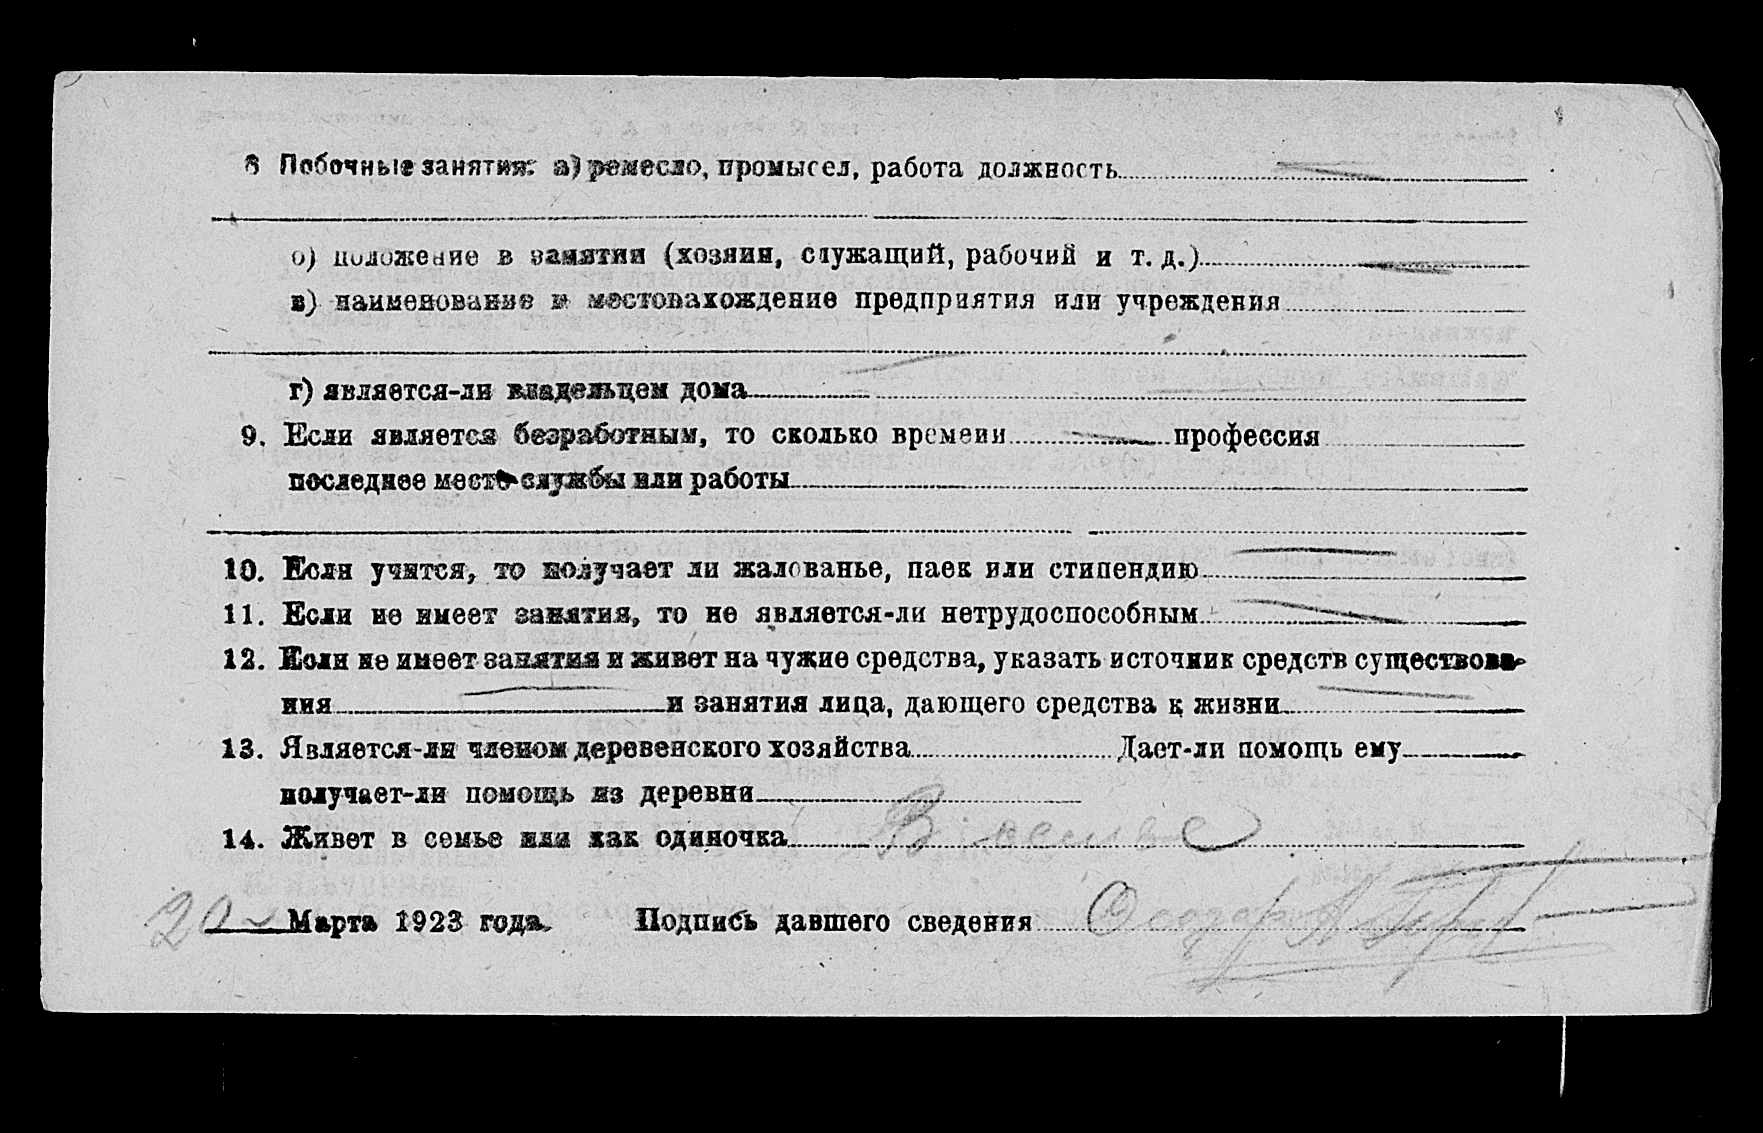 8 Побочные занятия: а) ремесло, промысел, работа должность
б) положение в занятии (хозяин, служащий, рабочий и т. д.)
в) наименование и местонахождение предприятия или учреждения
г) является-ли владельцем дома
9. Если является безработным, то сколько времени профессия
последнее место службы или работы
10. Если учится, то получает ли жалованье, паек или стипендию
11. Если не имеет занятия, то не является-ли нетрудоспособным
12. Если не имеет занятия и живет на чужие средства, указать источник средств существова-
ния и занятия лица, дающего средства к жизни
13. Является-ли членом деревенского хозяйства Дает-ли помощь ему
получает-ли помощь из деревни
14. Живет в семье или как одиночка В семье
20 Марта 1923 года. Подпись давшего сведения